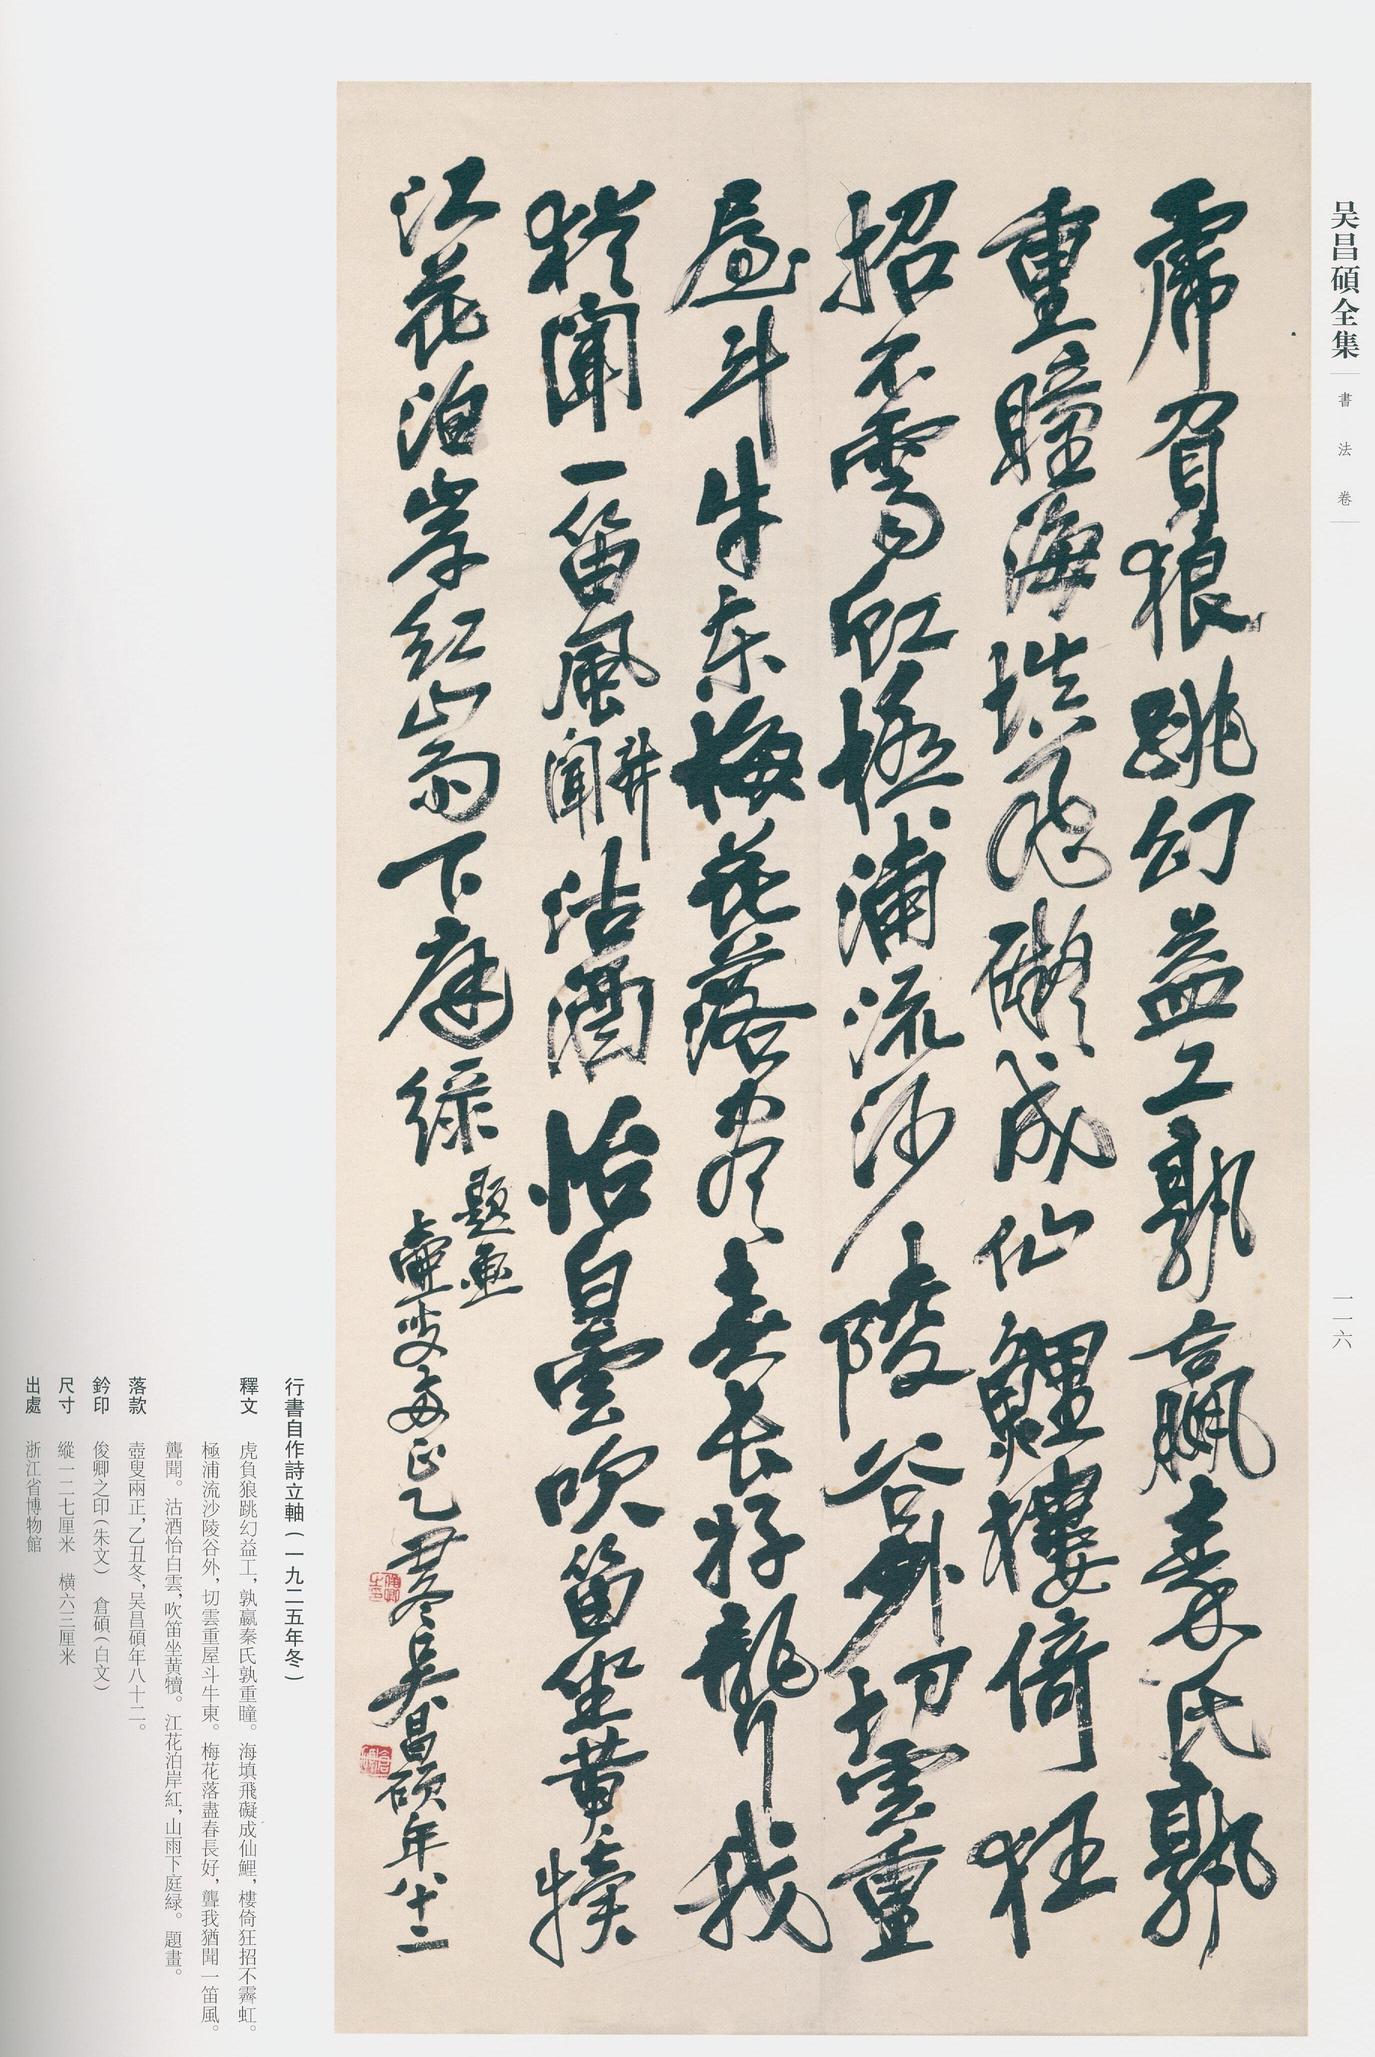 吴昌碩全集
書法卷
一一六
虎負狼跳幻益工孰嬴秦氏孰
重瞳海填飛礙成仙鯉樓倚狂
招不霽虹極浦流沙陵谷外切雲重
屋斗牛東梅花落盡春長好聾我
猶聞一笛風聾聞沽酒怡白雲吹笛坐黄犢
江花泊岸紅山雨下庭緑題畫
壺叟兩正乙丑冬吴昌碩年八十二
行書自作詩立軸（一九二五年冬）
釋文 虎負狼跳幻益工，孰嬴秦氏孰重瞳。海填飛礙成仙鯉，樓倚狂招不霽虹。
極浦流沙陵谷外，切雲重屋斗牛東。梅花落盡春長好，聾我猶聞一笛風。
聾聞。沽酒怡白雲，吹笛坐黄犢。江花泊岸紅，山雨下庭緑。題畫。
落款 壺叟兩正，乙丑冬，吴昌碩年八十二。
鈐印 俊卿之印（朱文） 倉碩（白文）
尺寸 縱一二七厘米 橫六三厘米
出處 浙江省博物館